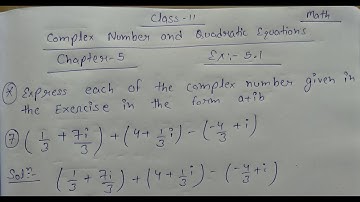 Class-11 Math
Complex Number and Quadratic Equations
Chapter-5 Ex:- 5.1
* Express each of the complex number given in
the Exercise in the form a+ib
7) (1/3 + 7i/3) + (4 + 1/3 i) - (-4/3 + i)
Sol:- (1/3 + 7i/3) + (4 + 1/3 i) - (-4/3 + i)